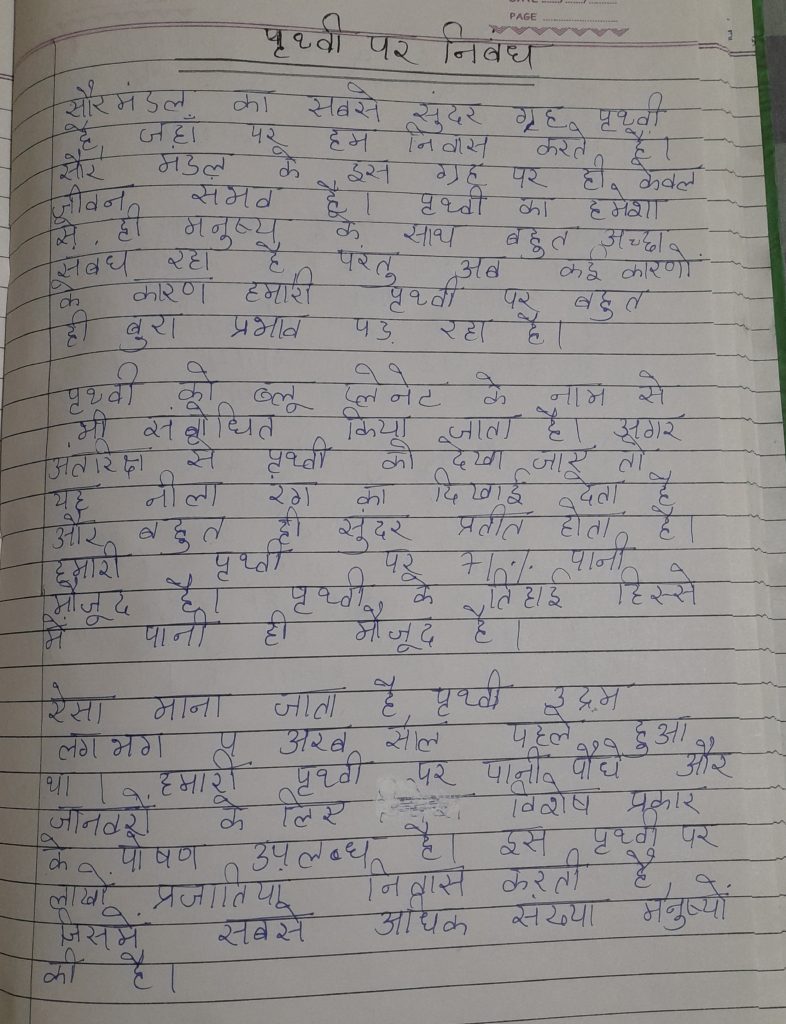 PAGE
पृथ्वी पर निबंध
सौरमंडल का सबसे सुंदर ग्रह पृथ्वी
है जहाँ पर हम निवास करते है।
सौर मंडल के इस ग्रह पर ही केवल
जीवन संभव है। पृथ्वी का हमेशा
से ही मनुष्य के साथ बहुत अच्छा
संबंध रहा है परंतु अब कई कारणों
के कारण हमारी पृथ्वी पर बहुत
ही बुरा प्रभाव पड़ रहा है।
पृथ्वी को ब्लू प्लेनेट के नाम से
भी संबोधित किया जाता है। अगर
अंतरिक्ष से पृथ्वी को देखा जाए तो
यह नीला रंग का दिखाई देता है
और बहुत ही सुंदर प्रतीत होता है।
हमारी पृथ्वी पर 71% पानी
मौजूद है। पृथ्वी के तिहाई हिस्से
में पानी ही मौजूद है।
ऐसा माना जाता है पृथ्वी उद्रम
लगभग ५ अरब साल पहले हुआ
था। हमारी पृथ्वी पर पानी, पौधे और
जानवरों के लिए विशेष प्रकार
के पोषण उपलब्ध है। इस पृथ्वी पर
लाखों प्रजातियां निवास करती है,
जिसमें सबसे अधिक संख्या मनुष्यों
की है।